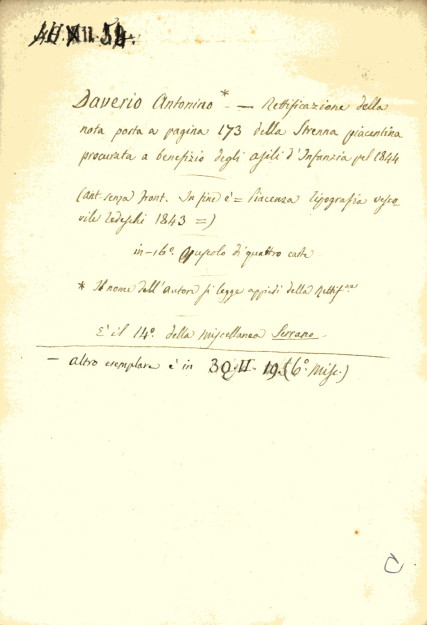 Daverio Antonino * — Rettificazione della
nota posta a pagina 173 della Strenna piacentina
procurata a benefizio degli asili d'Infanzia pel 1844
(ant. senza front. In fine è = Piacenza Tipografia vesco-
vile Tedeschi 1843 =)
in-16°. Opuscolo di quattro carte
* Il nome dell'autore si legge appiedi della Rettif.ne
È il 14°. della miscellanea Serrano
— altro esemplare è in 30.II.19 (6° Misc.)
C